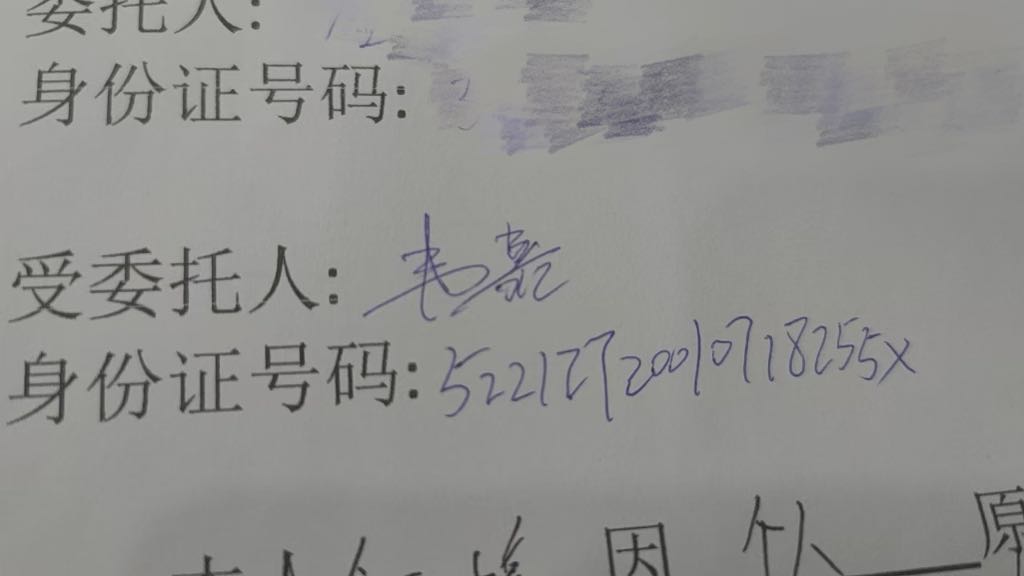 委托人:
身份证号码:
受委托人: 韦
身份证号码: 52212720010718255x
本人 因 个人 原